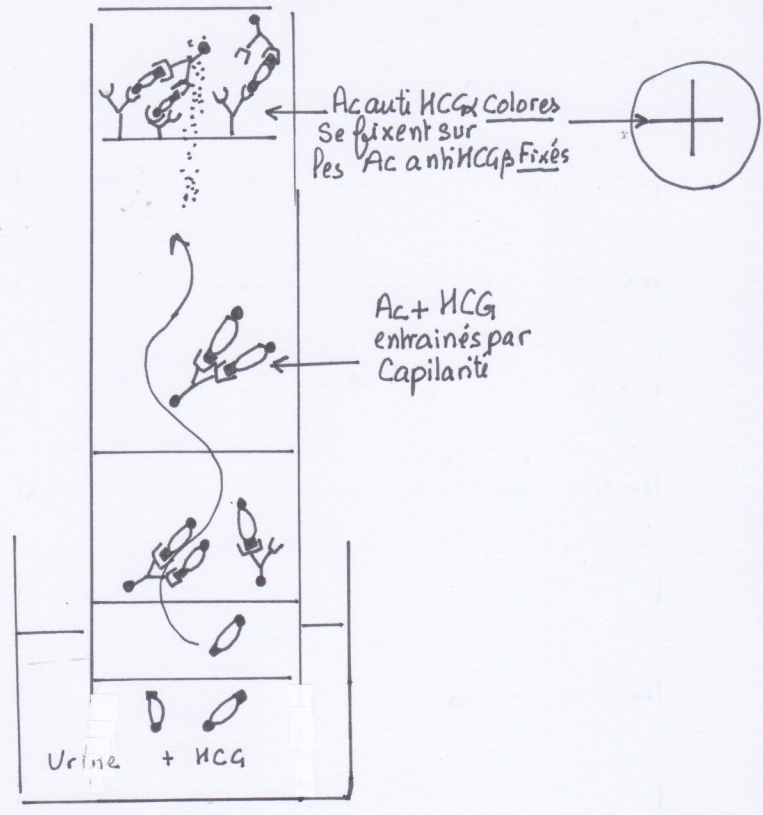 Ac anti HCGα Colores
Se fixent sur
les Ac antiHCGβ Fixés
Ac + HCG
entrainés par
Capilarité
Urine + HCG